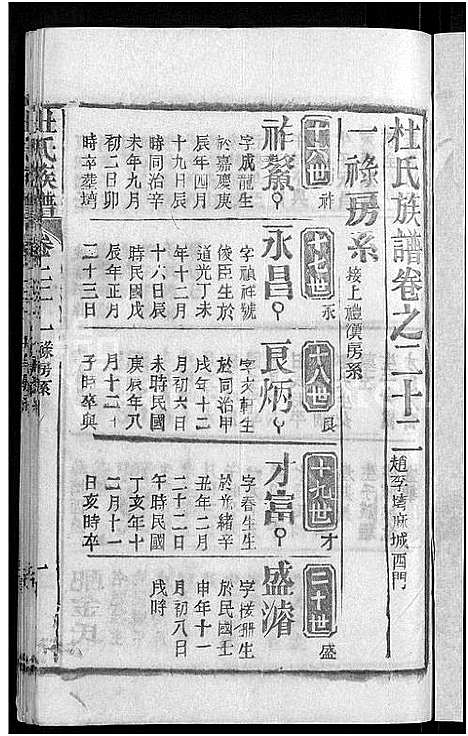 杜氏族譜卷之二十二 趙李塆麻城西門
一祿房系 接上禮漢房系
十六世 祚
祚鰲
字成龍生
於嘉慶東
辰年四月
十九日辰
時同治辛
未年九月
初二日卯
時卒葬塆
十七世 永
永昌
字禎祥號
俊臣生於
道光丁未
年十二月
十六日辰
時民國戊
辰年正月
二十三日
十八世 良
良炳
字文軒生
於同治甲
戌年十二
月初六日
未時民國
庚辰年八
月十二
子時卒與
十九世 才
才富
字春生生
於光緒辛
丑年二月
二十二日
午時民國
丁亥年十
二月十一
日亥時卒
二十世 盛
盛濬
字俊珊生
於民國壬
申年十一
月初八日
戌時
杜氏族譜 卷二十二 一祿房系 一